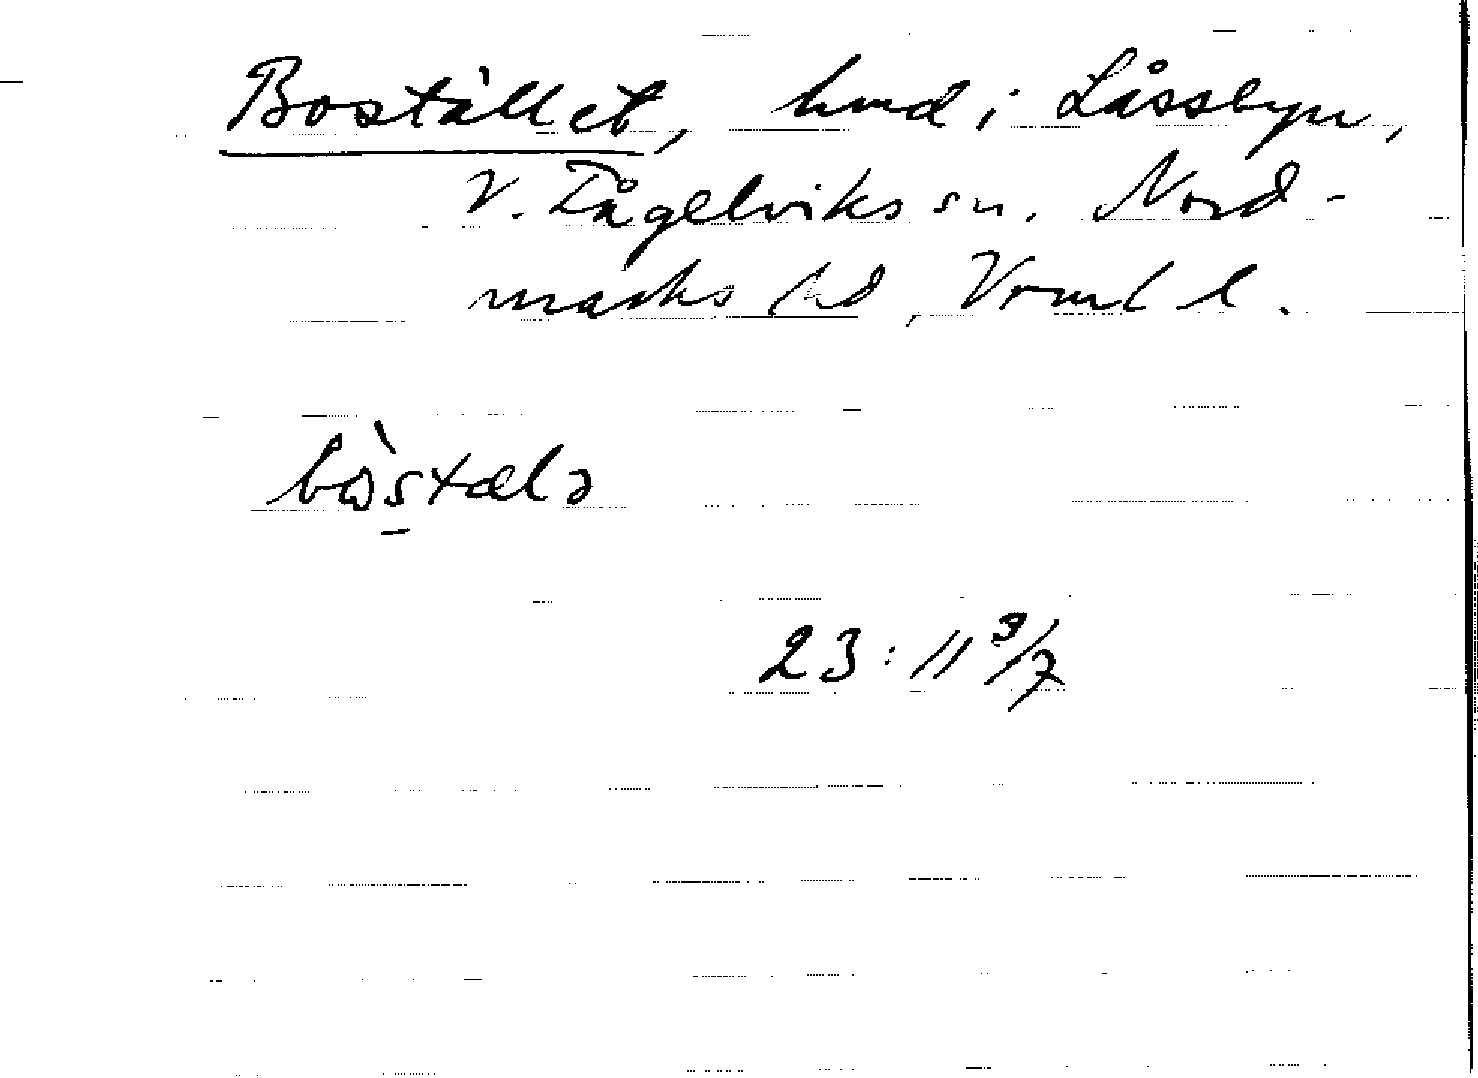 Bostället, hmd i Låssbyn,
V. Fågelviks sn. Nord-
marks hd, Vrml l.
bòstælə
23: 11 9/7